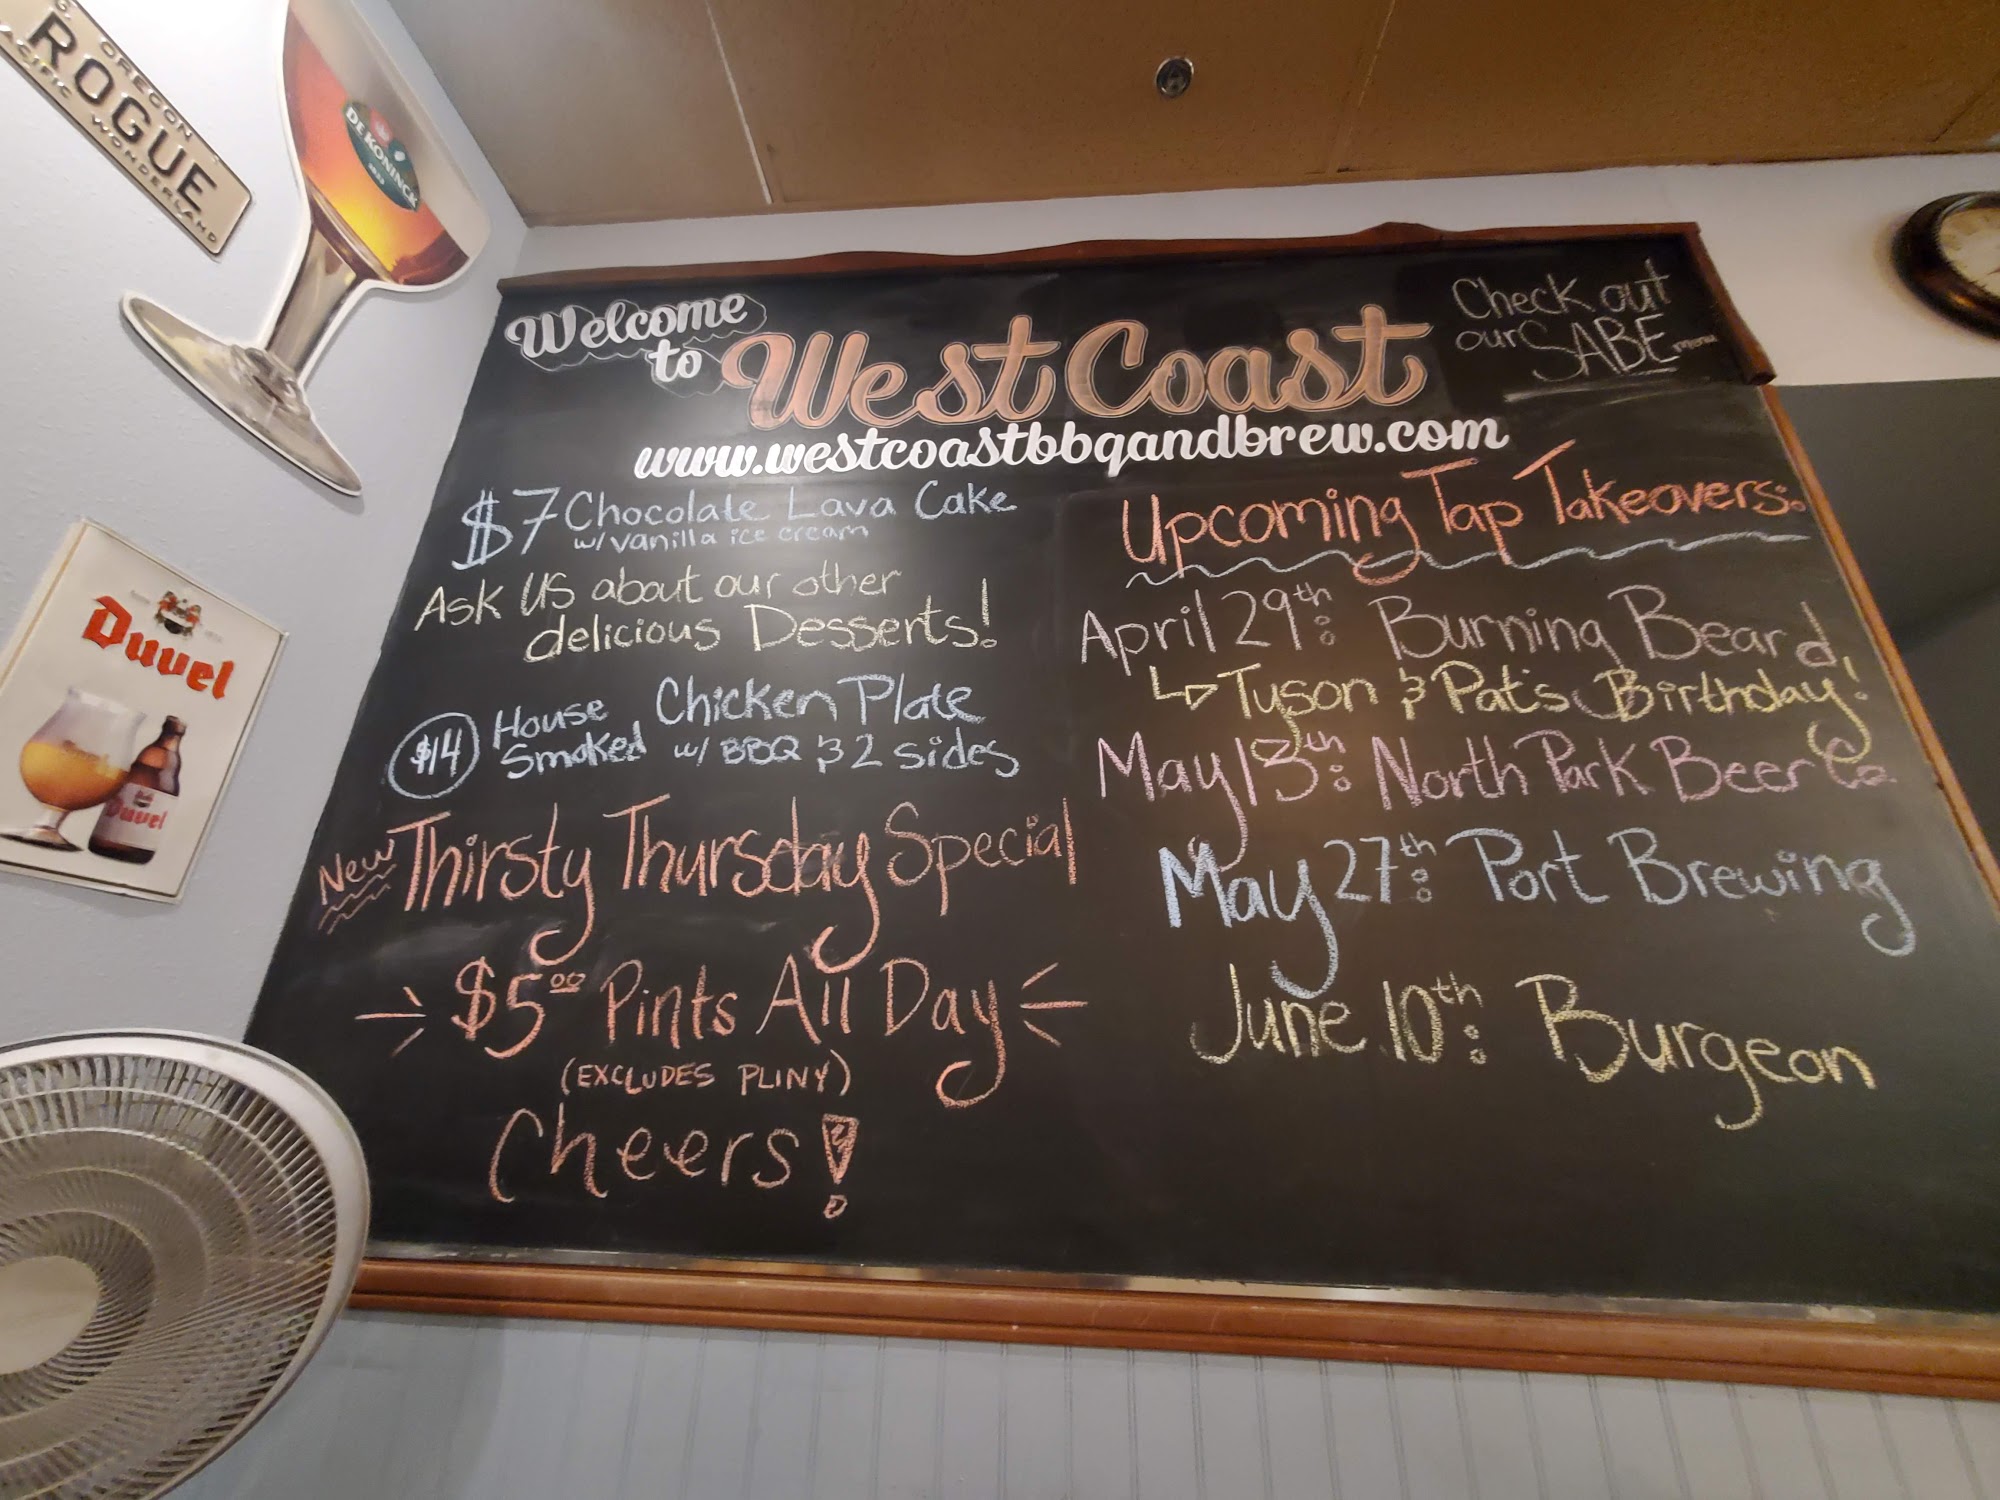 OREGON
ROGUE
PACIFIC WONDERLAND
DE KONINCK
Duvel
Duvel
Welcome
to West Coast
www.westcoastbbqandbrew.com
Check out
our SABE menu
$7 Chocolate Lava Cake
w/ vanilla ice cream
Ask us about our other
delicious Desserts!
$14 House Smoked Chicken Plate
w/ BBQ & 2 sides
New Thirsty Thursday Special
$5.00 Pints All Day
(EXCLUDES PLINY)
Cheers!
Upcoming Tap Takeovers:
April 29th: Burning Beard
Tyson & Pat's Birthday!
May 13th: North Park Beer Co.
May 27th: Port Brewing
June 10th: Burgeon